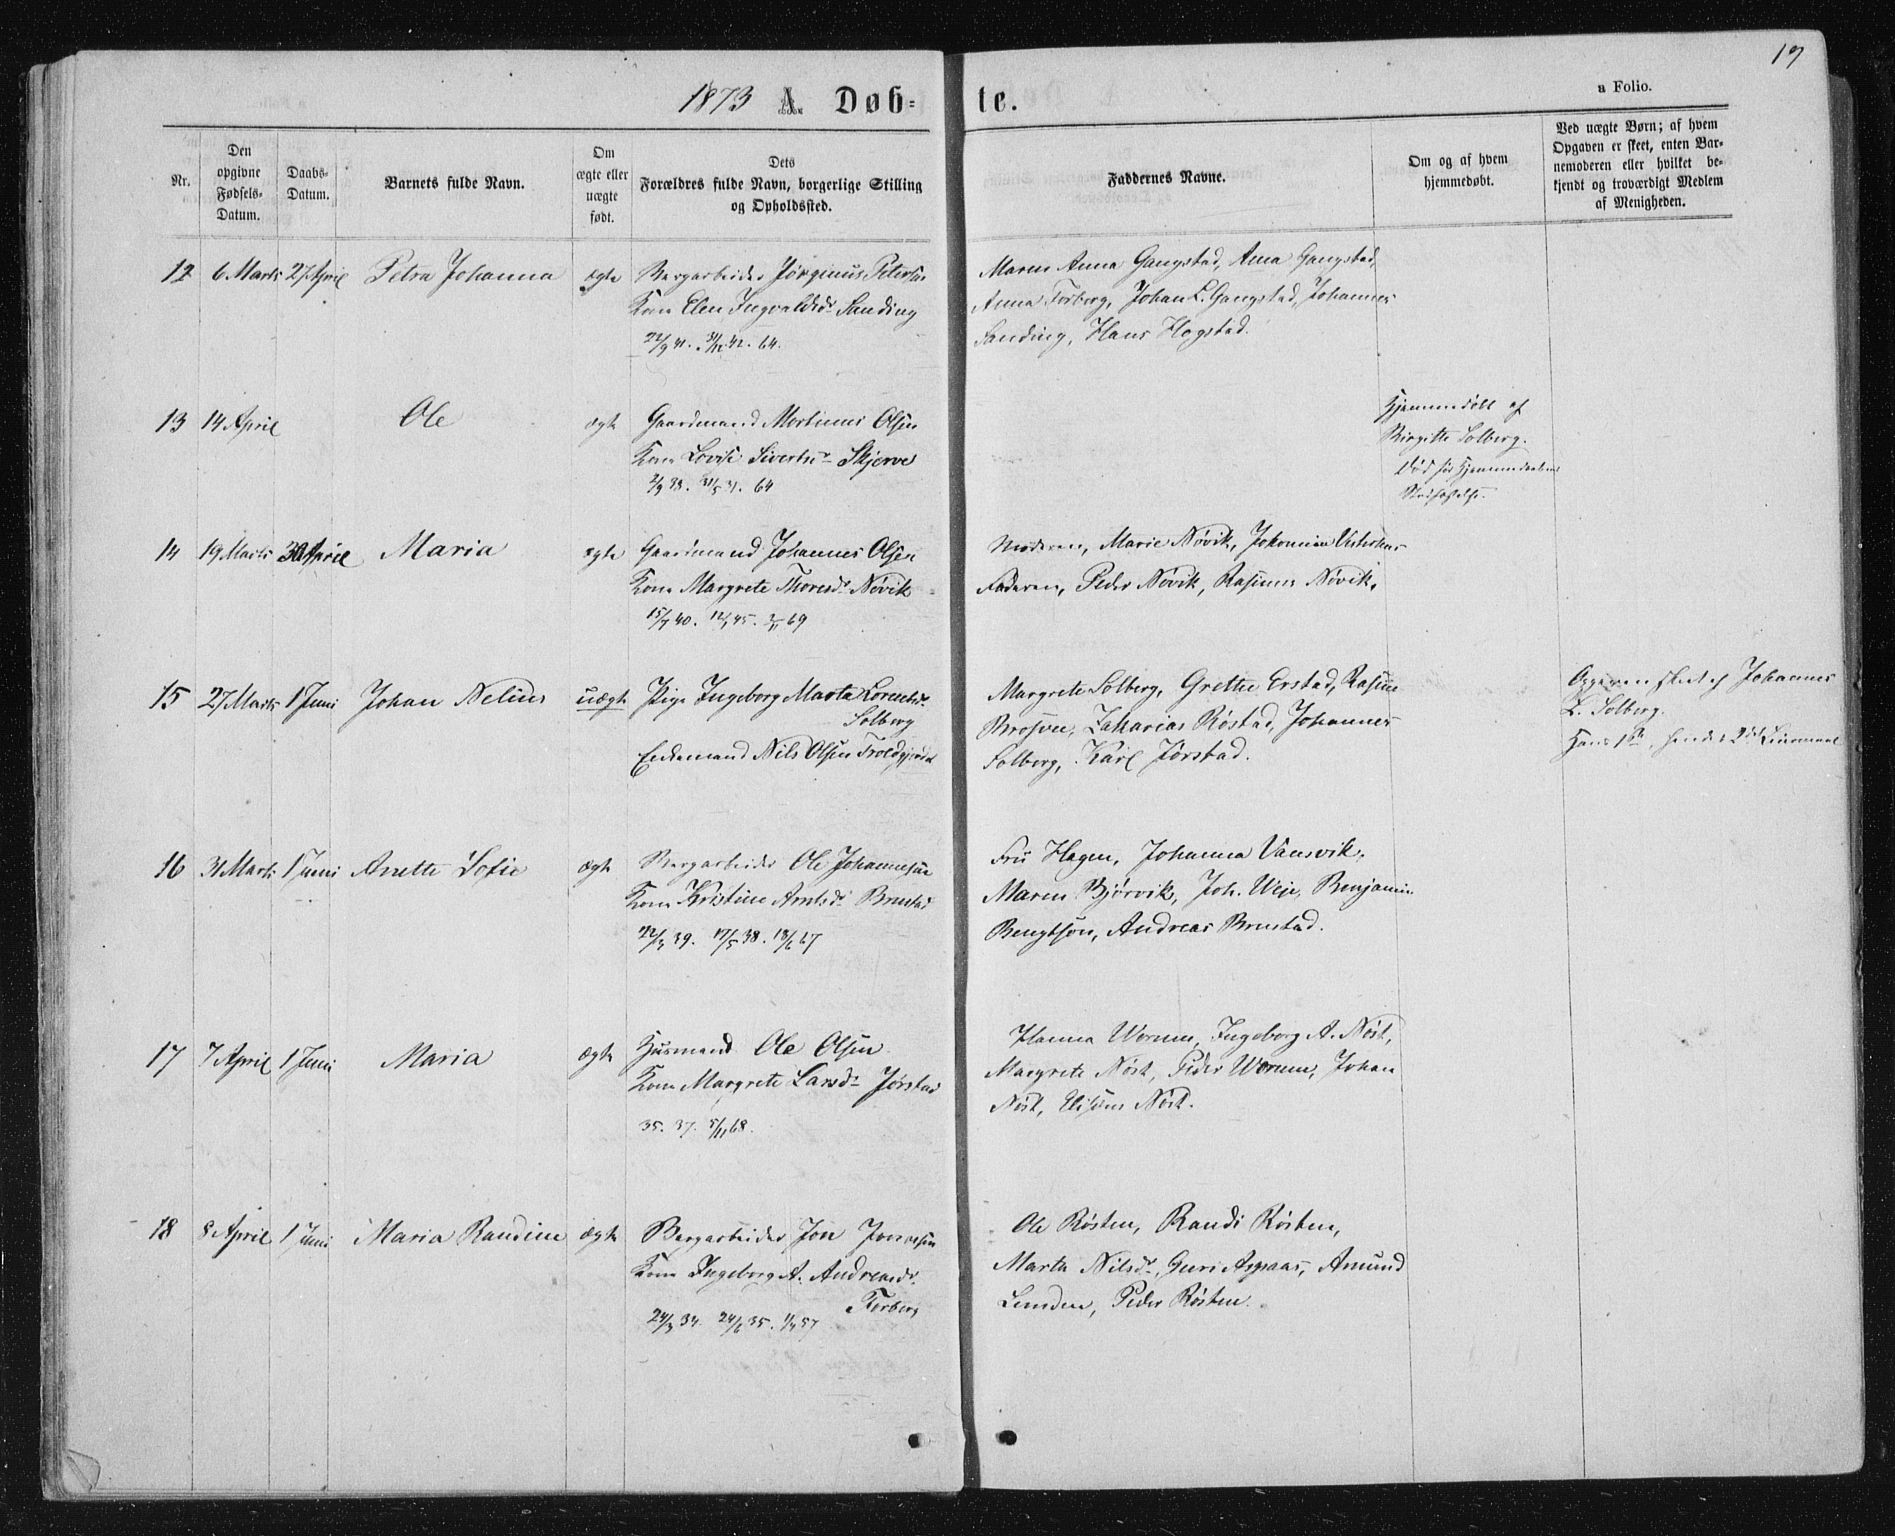 19
a Folio.
1873 A. Døb-te.
Nr.
Den opgivne Fødsels-Datum.
Daabs-Datum.
Barnets fulde Navn.
Om ægte eller uægte født.
Dets Forældres fulde Navn, borgerlige Stilling og Opholdssted.
Faddernes Navne.
Om og af hvem hjemmedøbt.
Ved uægte Børn; af hvem Opgaven er skeet, enten Barnemoderen eller hvilket bekjendt og troværdigt Medlem af Menigheden.
12 6 Marts 27 April Petra Johanna ægte Bergarbeider Jørginus Petersen
Kone Elen Ingvaldsd. Sanding
22/9 41. 31/12 42. 64.
Maren Anna Gangstad, Anna Gangstad,
Anna Forberg, Johan L. Gangstad, Johannes
Sanding, Hans Hogstad.
13 14 April Ole ægte Gaardmand Mortinus Olsen
Kone Lovise Sivertsd. Skjerve
2/9 33. 31/5 31. 64
Hjemmedøbt af
Birgitte Solberg.
Død før Hjemmedaabens
Stadfæstelse.
14 19 Marts 30 April Maria ægte Gaardmand Johannes Olsen
Kone Margrete Thoresd. Nøvik
15/7 40. 12/1 45. 2/11 69
Moderen, Marie Nøvik,
Faderen, Peder Nøvik, Rasmus Nøvik.
15 27 Marts 1 Juni Johan Nelius uægte Pige Ingeborg Marta Lorentsd.
Solberg
Enkemand Nils Olsen
Margrete Solberg, Grethe Erstad,
Zakarias Røstad, Johannes
Solberg, Karl Jørstad.
Opgaven skeet af Johannes
L. Solberg.
Hans 1ste, hendes 2det Leiermaal
16 31 Marts 1 Juni Anette Sofie ægte Bergarbeider Ole Johannesen
Kone Kristine Arntsd. Brustad
22/3 39. 17/5 38. 13/6 67
Fru Hagen, Johanna Vansvik,
Maren Bjørvik, Joh. Weie, Benjamin
Bengtson, Andreas Brustad.
17 7 April 1 Juni Maria ægte Husmand Ole Olsen
Kone Margrete Larsd. Jørstad
35. 37. 5/11 68.
Hanna Worum, Ingeborg A. Nøst,
Margrete Nøst, Peder Worum, Johan
Nøst, Elisæus Nøst.
18 8 April 1 Juni Maria Randine ægte Bergarbeider Jon Jonassen
Kone Ingeborg A. Andreasd.
Forberg
24/3 34. 24/6 35. 1/7 57
Ole Røsten, Randi Røsten,
Marta Nilsd., Guri Aspaas, Amund
Lunden, Peder Røsten.